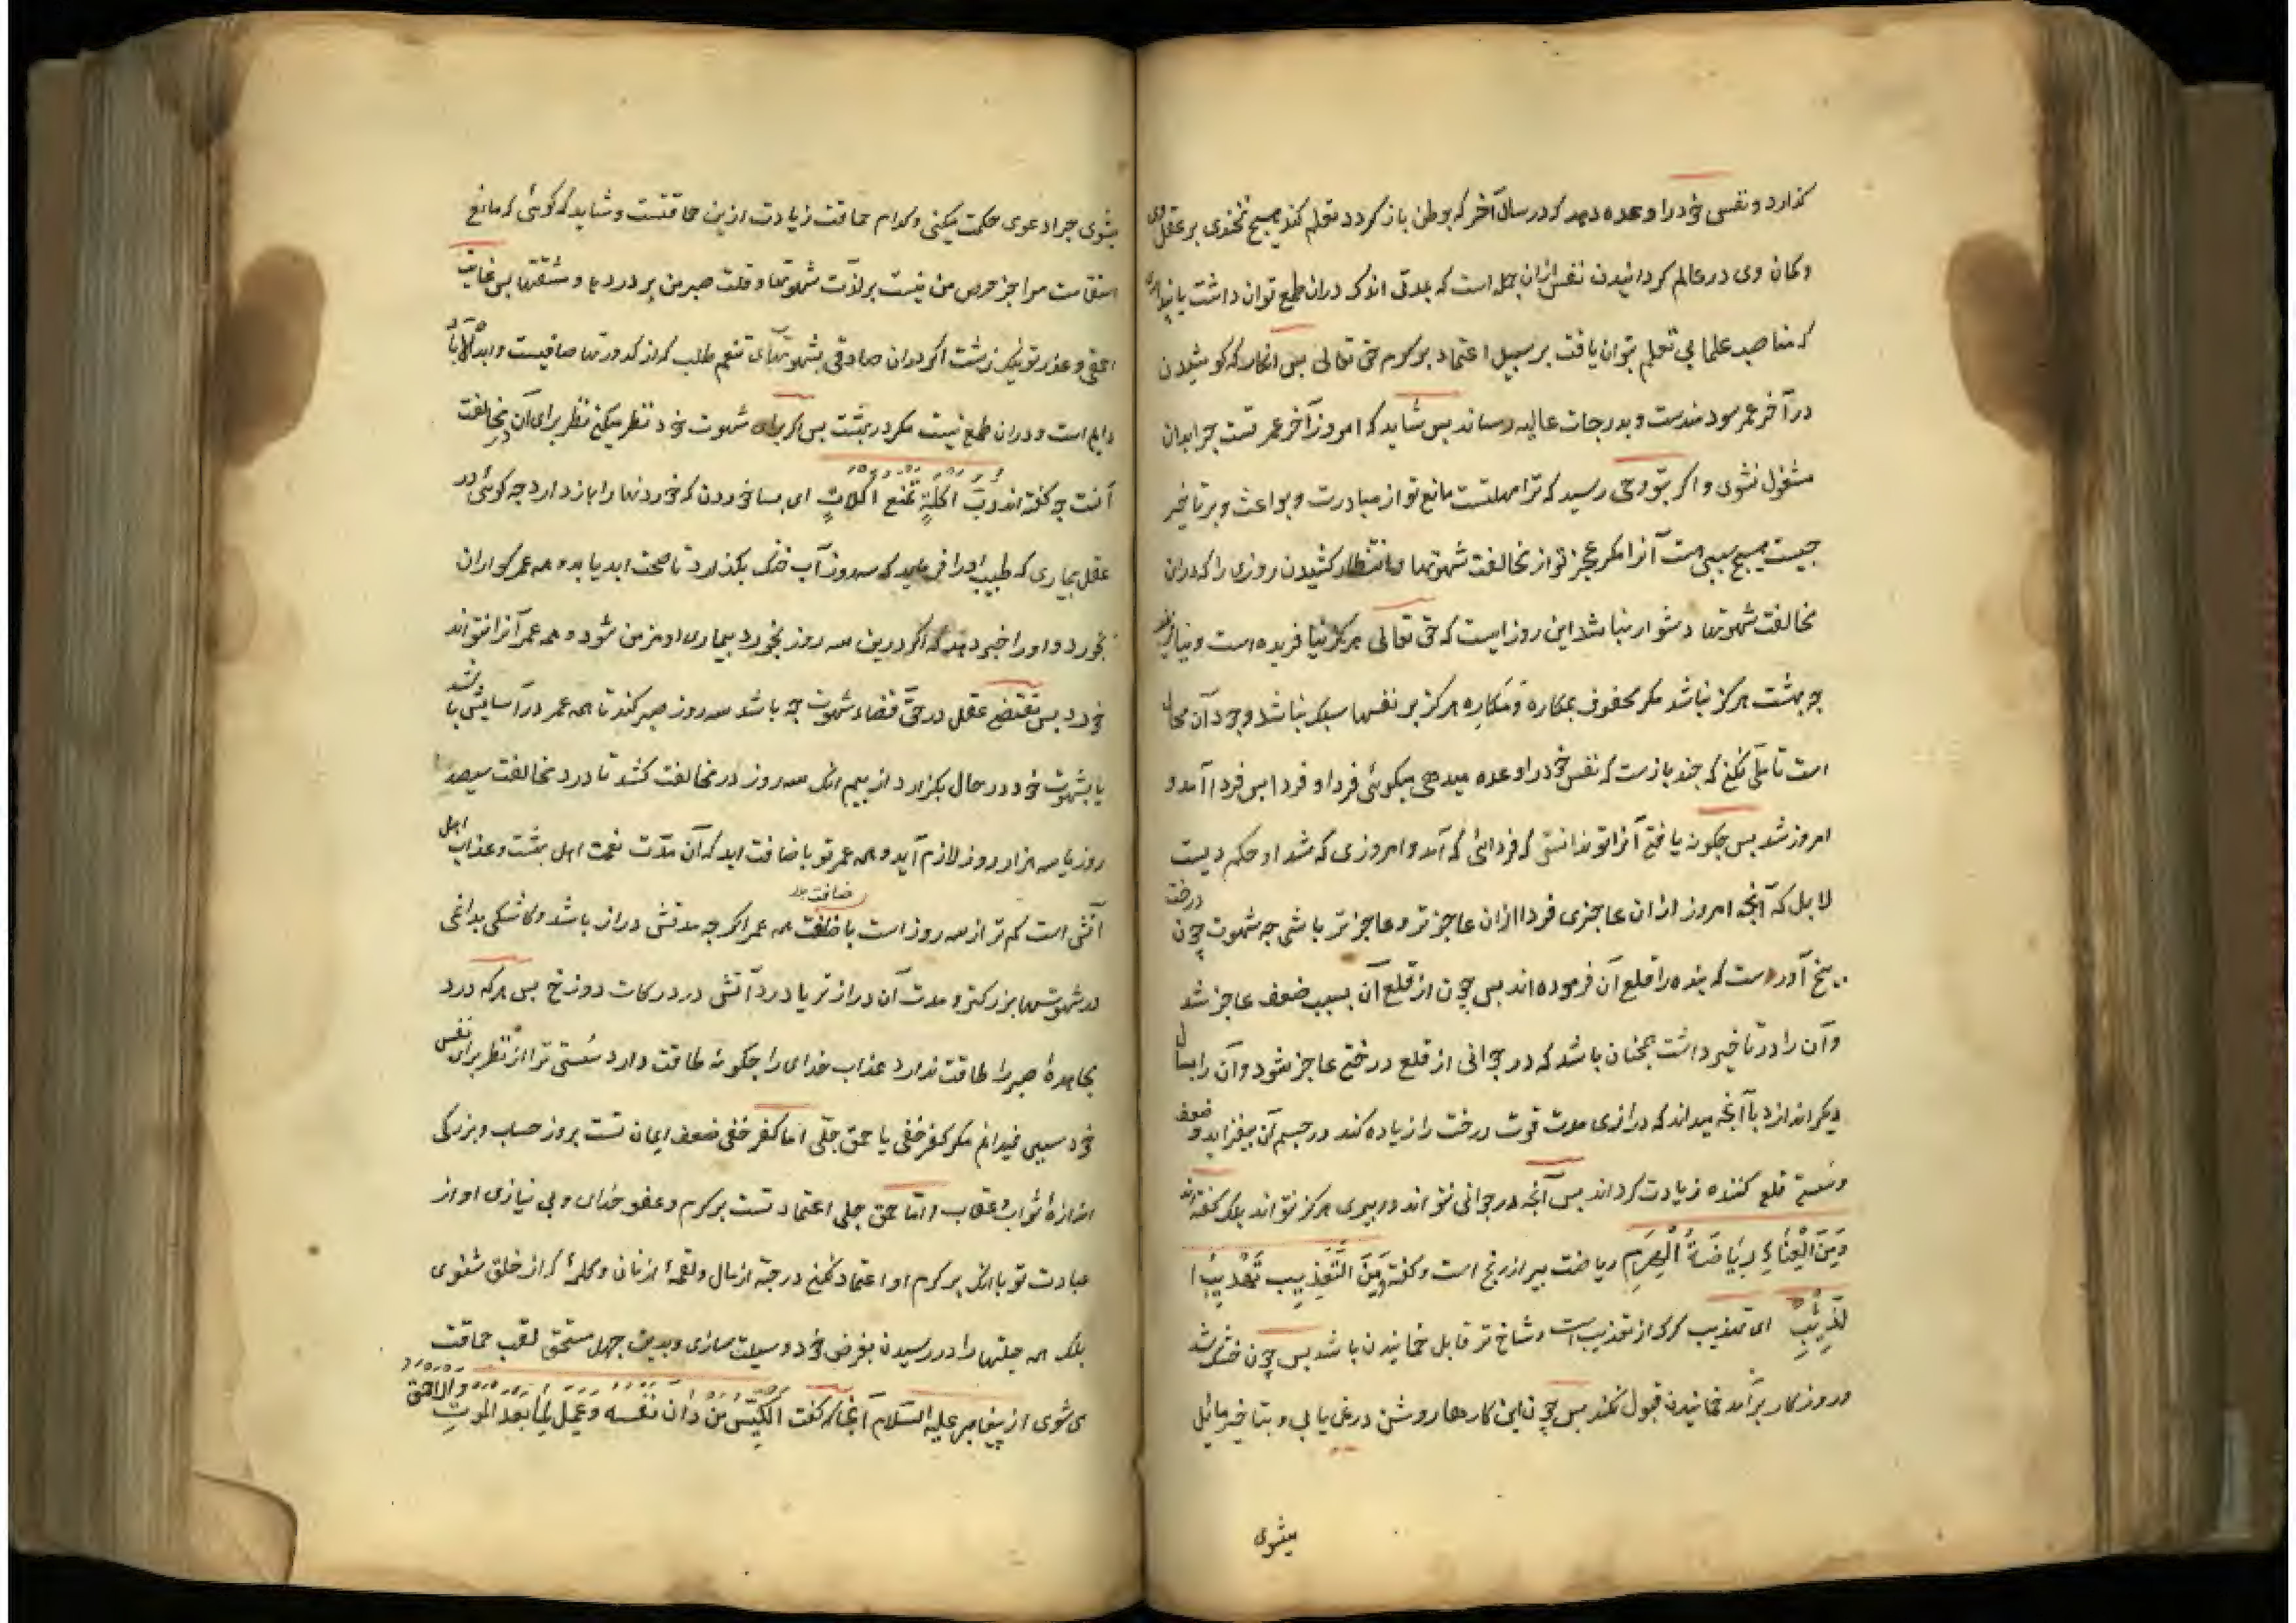 گذارد و نفس خود را وعده دهد که در سال آخر که بوطن باز گردد تعلم کند هیچ نخندی بر عقل وی
و گمان وی در عالم گردانیدن نفس ازان جمله است که بمدتی اندک دران طمع توان داشت یا
که مناصب علما بی تعلم بتوان یافت بر سبیل اعتماد بر کرم حق تعالی پس انگار که کوشیدن
در آخر عمر سودمندست و بدرجات عالیه رساند پس شاید که امروز آخر عمر تست چرا بدان
مشغول نشوی و اگر بتو وحی رسید که ترا مهلتست مانع تو از مبادرت و بواعث و بر تاخیر
چیست هیچ سببی هست آنرا مگر عجز تو از مخالفت شهوتها و انتظار کشیدن روزی را که دران
مخالفت شهوتها دشوار نباشد این روز است که حق تعالی هرگز نیافریده است و نیافریند
چه بهشت هرگز نباشد مگر محفوف بمکاره و مکاره هرگز بر نفسها سبک نباشد و وجود آن محال
است تامل نکنی که چند بازست که نفس خود را وعده میدهی میگوئی فردا و فردا پس فردا آمد و
امروز شد پس چگونه یافتی آنرا تو ندانستی که فردائی که آمد و امروزی که شد او حکم دیست
لا بل که آنچه امروز ازان عاجزی فردا ازان عاجزتر و عاجزتر باشی چه شهوت چون درخت
بیخ آورست که بنده را قلع آن فرموده اند پس چون از قلع آن بسبب ضعف عاجز شد
و آن را در تاخیر داشت همچنان باشد که در جوانی از قلع درختی عاجز شود و آن را بسال
دیگر اندازد با آنچه میداند که درازی مدت قوت درخت را زیاده کند و در جسم آن بیفزاید و ضعف
و سستی قلع کننده زیادت گرداند پس آنچه در جوانی نتواند در پیری هرگز نتواند بلک گفته اند
وَمِنَ الْعَنَاءِ رِیَاضَةُ الْهَرِمِ ریاضت پیر از رنج است و گفته وَمِنَ التَّعْذِیبِ تَهْذِیبُ ا
لذِّیبِ ای تهذیب گرگ از تعذیب است و شاخ تر قابل خمانیدن باشد پس چون خشک شد
و روزگار برآمد خمانیدن قبول نکند پس چون این کارهاء روشن در نمی یابی و بتاخیر مائل
میشوی
میشوی چرا دعوی حکمت میکنی و کدام حماقت زیادت ازین حماقتست و شاید که گوئی که مانع
استقامت مرا جز حرص من نیست بر لذت شهوتها و قلت صبر من بر دردها و مشقتها پس غایت
احمقی و عذر تو نیک زشت اگر دران صادقی بشهوتهای تنعم طلب که از کدورتها صافیست و ابد الاباد
دایم است و دران طمع نیست مگر در بهشت پس اگر برای شهوت خود نظر میکنی نظر برای آن در مخالفت
آنست چه گفته اند رُبَّ اَکْلَةٍ تَمْنَعُ اَکَلَاتٍ ای بسا خوردن که خوردنها را باز دارد چه گوئی در
عقل بیماری که طبیب او را فرماید که سه روز آب خنک بگذارد تا صحت ابد یابد و همه عمر گواران
بخورد و او را خبر دهد که اگر درین سه روز بخورد بیماری او مزمن شود و همه عمر آنرا نتواند
خورد پس مقتضی عقل در حق قضاء شهوت چه باشد سه روز صبر کند تا همه عمر در آسایش باشد
یا شهوت خود در حال بگزارد از بیم انک سه روز در مخالفت کشد تا درد مخالفت سیصد
روز یا سه هزار روز لازم آید و همه عمر تو باضافت ابد که آن مدت نعمت اهل بهشت و عذاب اهل
آتش است کم تر از سه روز است باضافت همه عمر اگر چه مدتش دراز باشد و کاشکی بدانمی
در شهوتها بزرگتر و مدت آن درازتر یا درد آتش در درکات دوزخ پس هر که درد
مجاهدهٔ صبر را طاقت ندارد عذاب خدای را چگونه طاقت دارد سستی ترا از نظر برای نفس
خود سببی نمیدانم مگر کفر خفی یا حمق جلی اما کفر خفی ضعف ایمان تست بروز حساب و بزرگی
اندازهٔ ثواب و عقاب و اما حمق جلی اعتماد تست بر کرم و عفو خدای و بی نیازی او از
عبادت تو با انک بر کرم او اعتماد نکنی در حبهٔ از مال و لقمهٔ از نان و کلمهٔ که از خلق شنوی
بلک همه حیلتها را در رسیدن بغرض خود وسیلت سازی و بدین جهل مستحق لقب حماقت
می شوی از پیغامبر علیه السلام آنجا که گفت الْکَیِّسُ مَنْ دَانَ نَفْسَهُ وَعَمِلَ لِمَا بَعْدَ الْمَوْتِ وَالْاَحْمَقُ